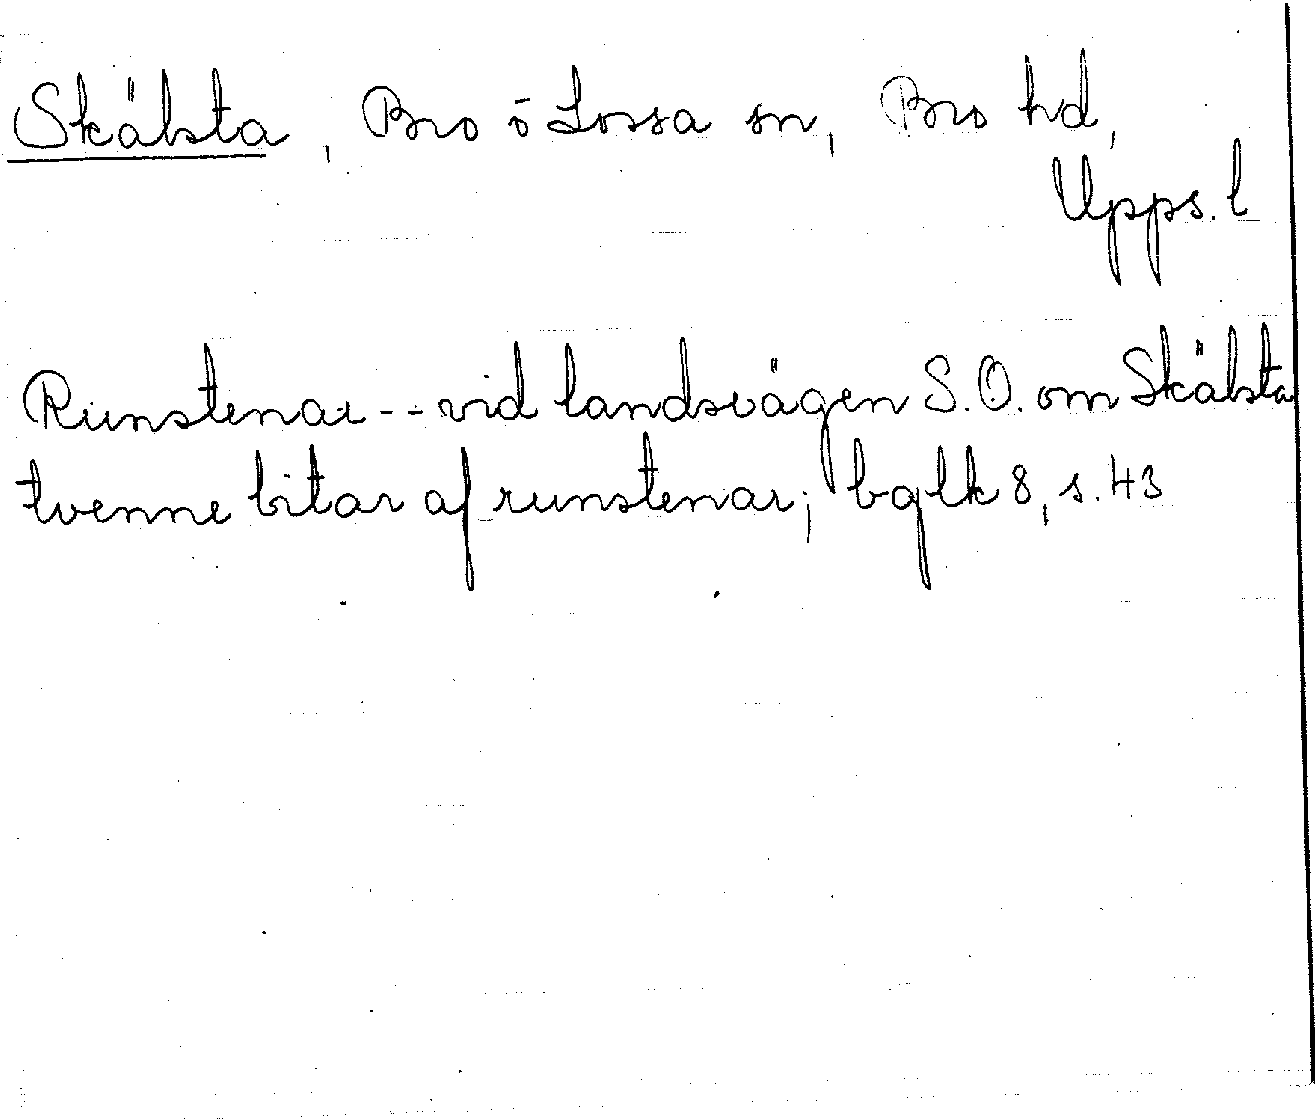 Skälsta, Bro o Lossa sn, Bro hd,
Upps. l
Runstenar -- vid landsvägen S.O. om Skälsta
tvenne bitar af runstenar; bglk 8, s. 43